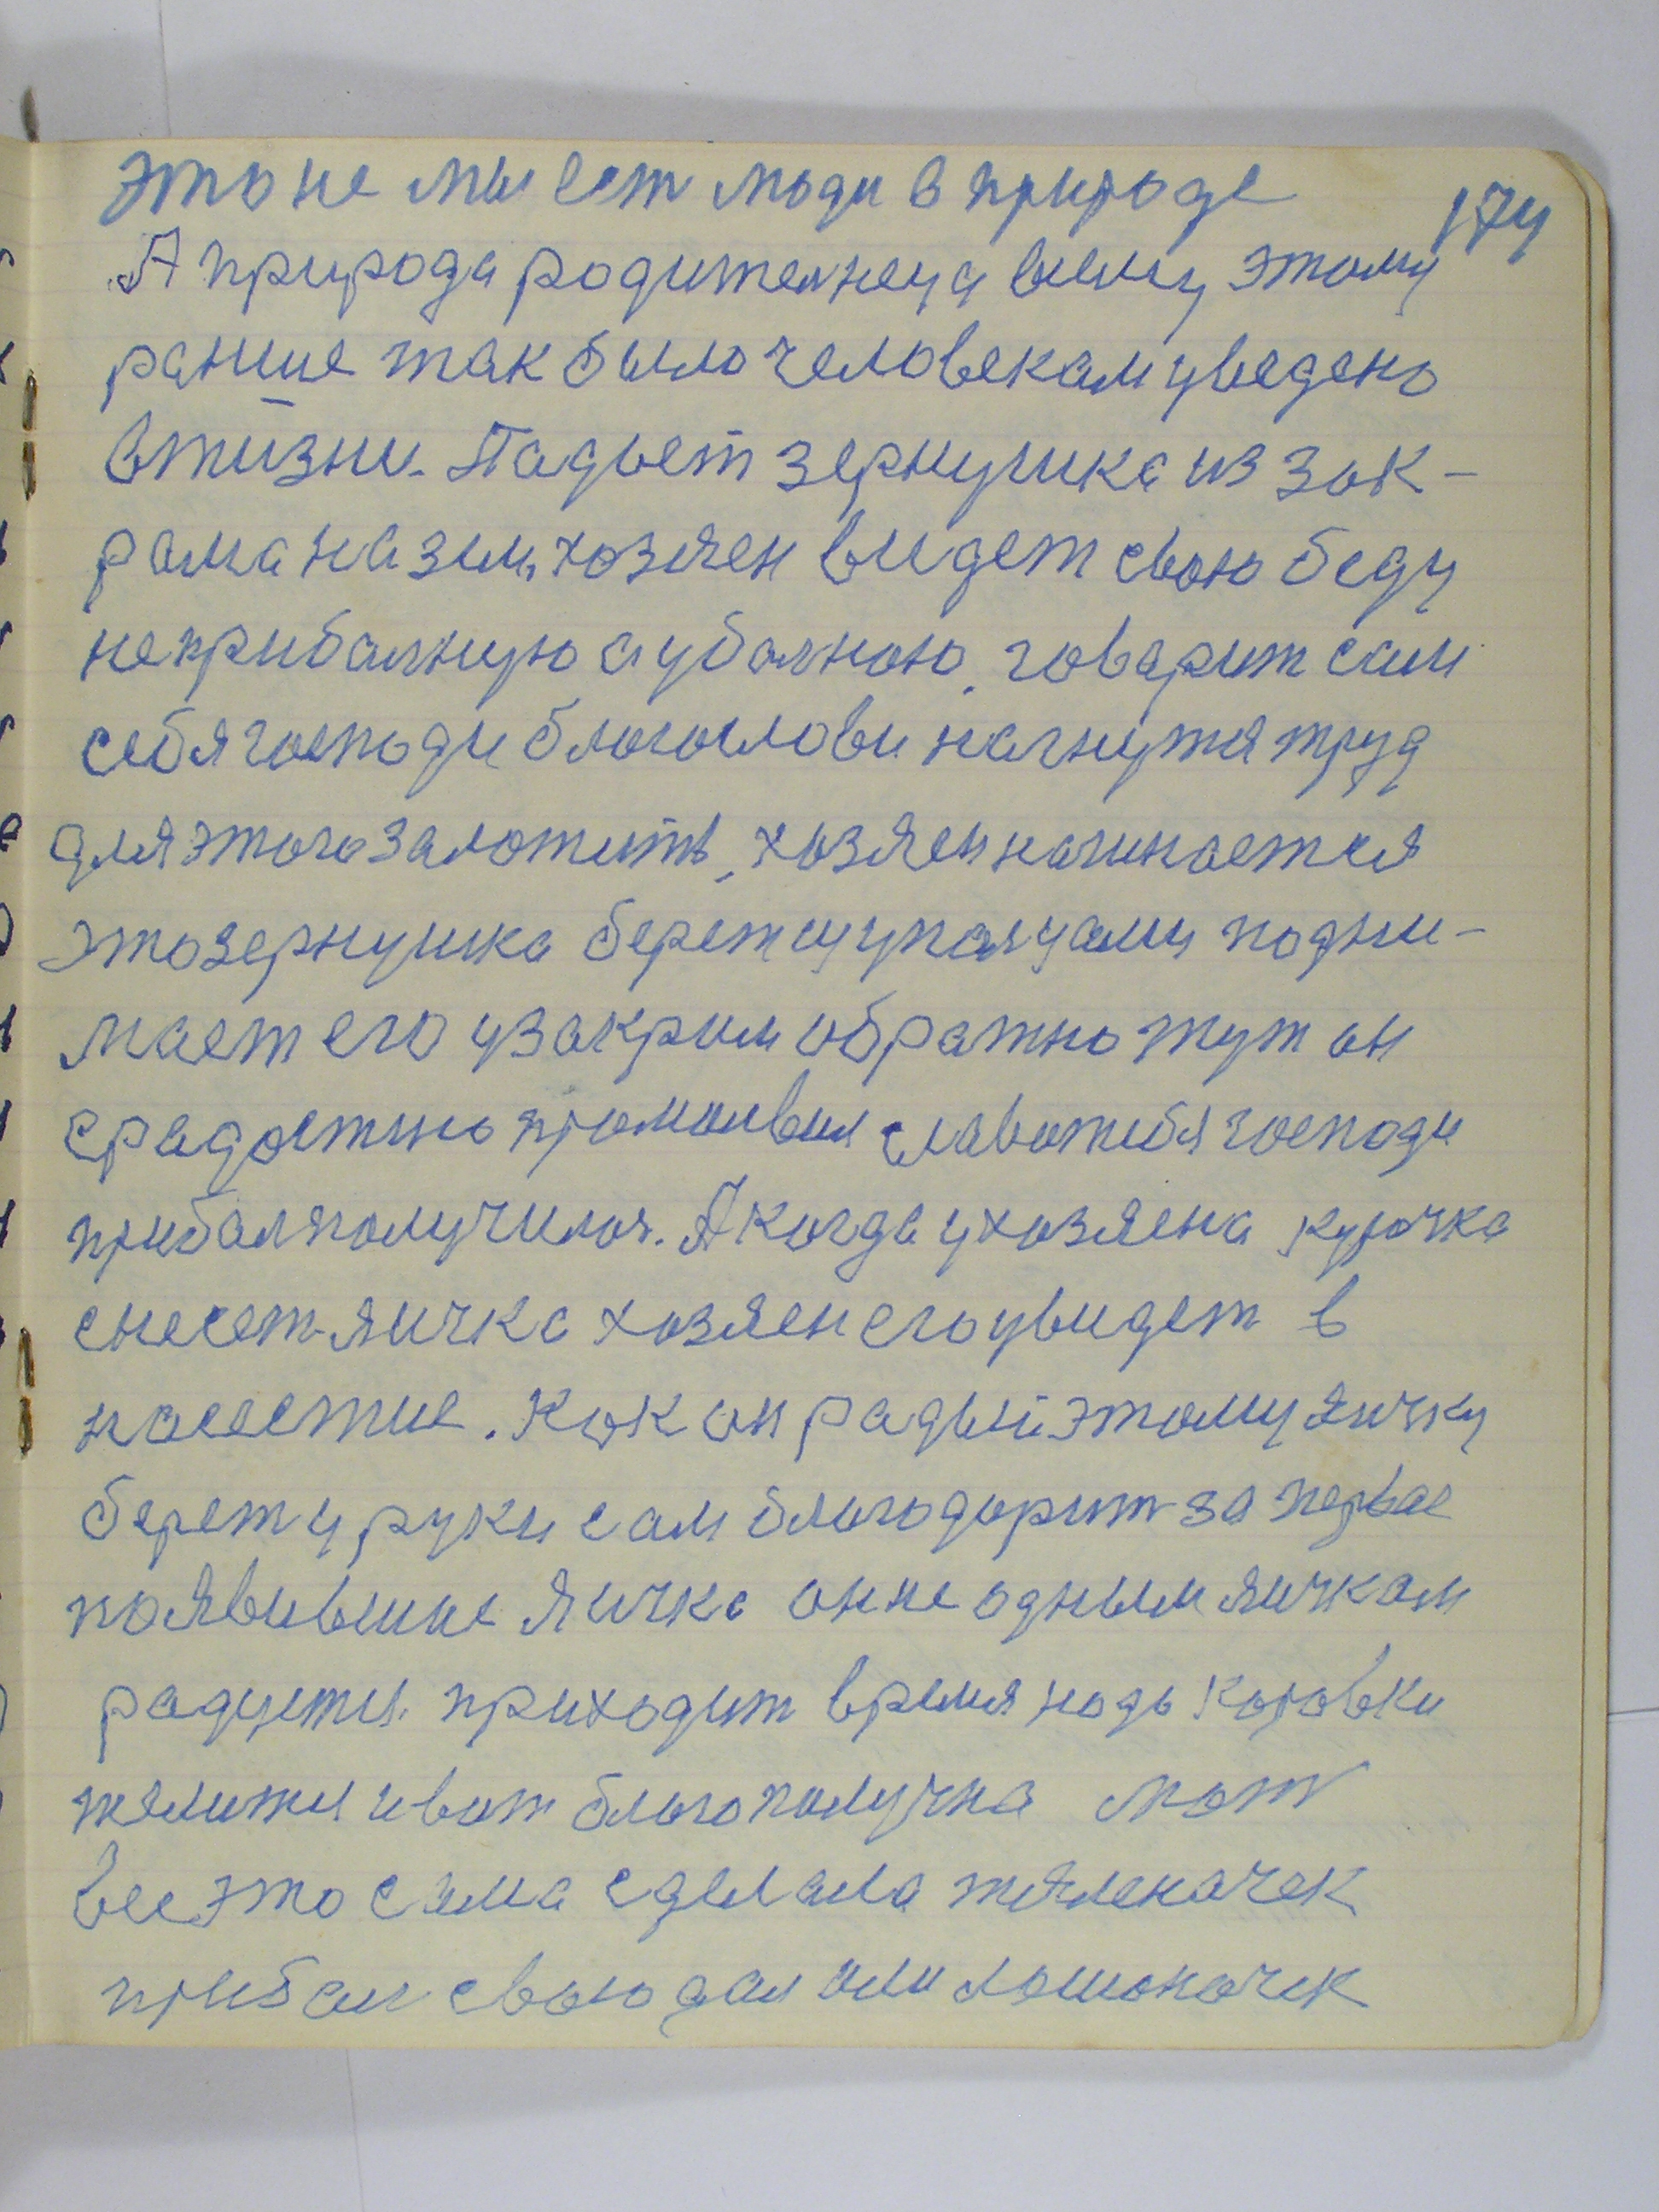 это не мы ест люди в природе
174
А природа родителнеца всему этому
ранше так было человекам уведено
в жизни. Падьет зернушка из зак-
рама на зем, хозяен видет свою беду
не прибалную а убалною, говарит сам
себя господи благослови нагнутся труд
для этого заложить, хозяен нагинается
это зернушка берет щупалцами подни-
мает его у закром обратно тут он
срадостью промолвил слава тебя господи
прибал получился. А когда у хозяена курочка
снесет яичка хозяен его увидет в
насестие. Как он радый этому яичку
берет у руки сам благодарит за первае
появившие яичка он не одным яичкам
радуется. приходит время надо коровки
телится и вот благополучна мат
все это сама сделала тяленачек
прибал свою дал или лошоначек